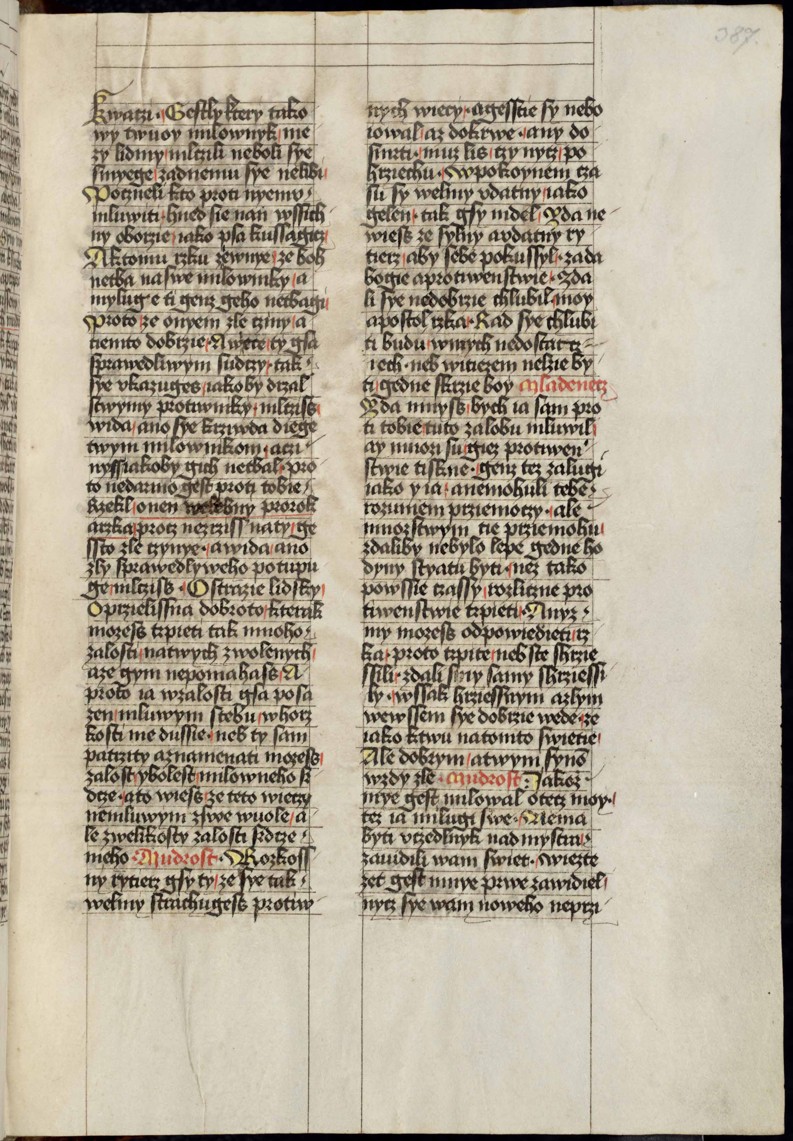 387.
kwatzi. Gestly ktery tako
wy twuoy milownyk, me
zy lidmy, mltzili neboli sye
smyege, zadnemu sye nelibi,
Potzneli kto proti nyemv
mluwiti, hned sie nan wssich
ny oborzie, iako psa kussagicz,
A ktomu rzku zewnye, ze boh
netba na swe milowniky, a
myluge ti genz geho netbagi,
Proto, ze onyem zle cziny, a
tiemto dobrzie, A wecc, ty gsa
sprawedliwym sudczy, tak
sye vkazuges, iakoby drzal
stwymy protiwniky, mltziss,
wida, ano sye krziwda diege
twym milownikom, aczi
nyss iakoby gich netbal, pro
to nedarmo gest proti tobie
krzekl, onen welebny prorok
arzka, procz nezrziss na ty, ge
ssto zle czynye, a wida, ano
zly sprawedlyweho potupu
ge, mltziss. O strazie lidsky,
O przielissna dobroto, kterak
mozess trpieti tak mnoho
zalosti, na twych zwolenych,
a ze gym nepomahass, A
proto ia wzalosti gsa posa
zen, mluwym stebu, whorz
kosti me dussie, neb ty sam
patrzity a znamenati mozess,
zalost y bolest, milowneho sr
dcze, a to wiess, ze teto wieczy
nemluwym zswe wuole, a
le zwelikosty zalosti srdcze
meho. Mudrost. Rozkoss
ny rytierz gsy ty, ze sye tak
welmy strachugess protiw
nych wiecy, a gesstie sy nebo
iowal, az dokrwe, any do
smrti, muz lis, tzy nycz, po
hrziechu, Wpokoynem cza
su sy welmy vdatny, iako
gelen, tak gsy mdel, Zda ne
wiess ze sylny a vdatny ry
tierz, aby sebe pokussyl, zada
bogie a protiwenstwie, Zda
li sye nedobrzie chlubil, moy
apostol rzka, Rad sye chlubi
ti budu, wmych nedostatcz
iech, neb witiezem nelzie by
ti, gedne skrzie boy Mladenecz
Zda mnyss, bych ia sam pro
ti tobie tuto zalobu mluwil,
ay mnozi su, giez protiwen
stwie tiskne, genz tez zalugi
iako y ia, a nemohuli tebe
rozumem przemoczy, ale
mnozstwym tie przemohu,
zdaliby nebylo lepe gedne ho
dyny styatu byti, nez tako
powssie czassy, rozlicne pro
tiwenstwie trpieti, A nyz
my mozess odpowiedieti, rz
ka, proto trpite, neb ste shrzie
ssili, zdali smy samy shrziessi
ly, wssak hrziessnym a zlym
wewssem sye dobrzie wede, ze
iako ktwu na tomto swietie,
Ale dobrym, a twym synom
wzdy zle. Mudrost. Jakoz
mye gest milowal otecz moy,
tez ia milugi swe, Nema
byti vczedlnyk nad mystra,
zawidili wam swiet, Wiezte
zet gest mnye prwe zawidiel,
nycz sye wam noweho neprzi